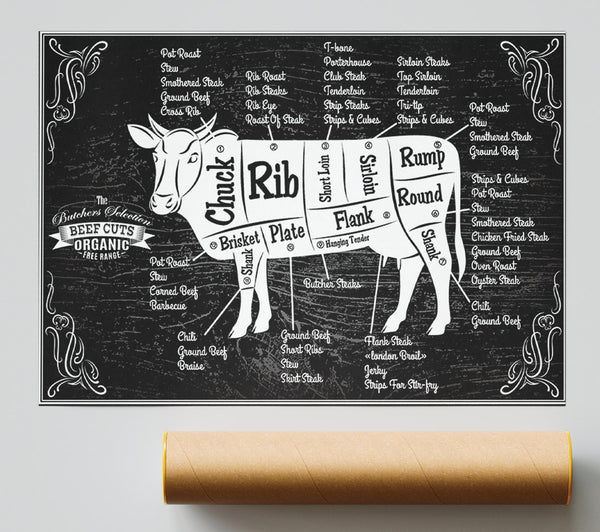 T-bone
Porterhouse
Club Steak
Tenderloin
Strip Steaks
Strips & Cubes
Pot Roast
Stew
Smothered Steak
Ground Beef
Cross Rib
Sirloin Steaks
Top Sirloin
Tenderloin
Tri-tip
Strips & Cubes
Rib Roast
Rib Steaks
Rib Eye
Roast Of Steak
Pot Roast
Stew
Smothered Steak
Ground Beef
Chuck
①
Rib
②
Short Loin
③
Sirloin
④
Rump
⑤
Round
⑥
Shank
⑦
Flank
⑧
⑨ Hanging Tender
Plate
Brisket
Shank
The
Butchers Selection
BEEF CUTS
ORGANIC
FREE RANGE
Strips & Cubes
Pot Roast
Stew
Smothered Steak
Chicken Fried Steak
Ground Beef
Oven Roast
Oyster Steak
Pot Roast
Stew
Corned Beef
Barbecue
Butcher Steaks
Chili
Ground Beef
Chili
Ground Beef
Braise
Ground Beef
Short Ribs
Stew
Skirt Steak
Flank Steak
«london Broil»
Jerky
Strips For Stir-fry